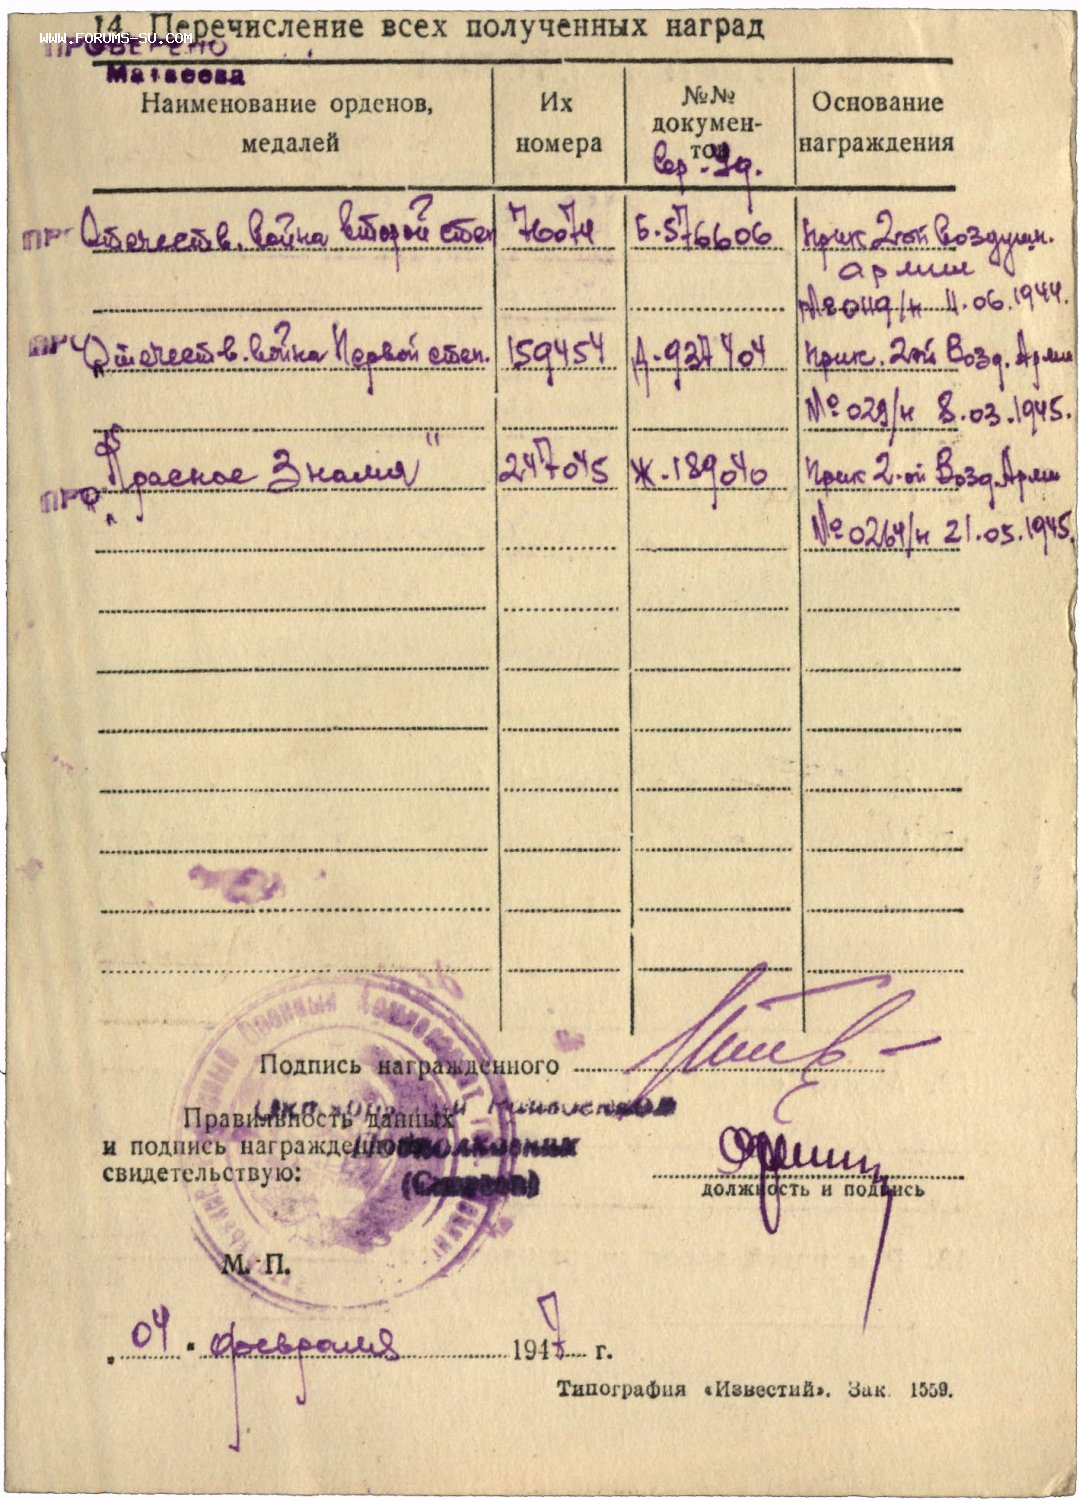 14. Перечисление всех полученных наград
WWW.FORUMS-SU.COM
ПРОВЕРЕНО
Матвеева
Наименование орденов, медалей
Их номера
№№ документов
Сер. - Уд.
Основание награждения
Отечеств. война второй степ
76074
Б.576606
Прик 2-ой Воздушн.
армии
№ 0119/н 11.06.1944.
Отечеств. война Первой степ.
159454
Д-937404
Прик. 2-ой Возд. Армии
№ 029/н 8.03.1945.
"Красное Знамя"
247045
Ж.189040
Прик 2-ой Возд. Армии
№ 0264/н 21.05.1945.
Подпись награжденного
Правильность данных
и подпись награжденного
свидетельствую:
Подполковник
должность и подпись
М. П.
„04" февраля 1947 г.
Типография «Известий». Зак. 1559.